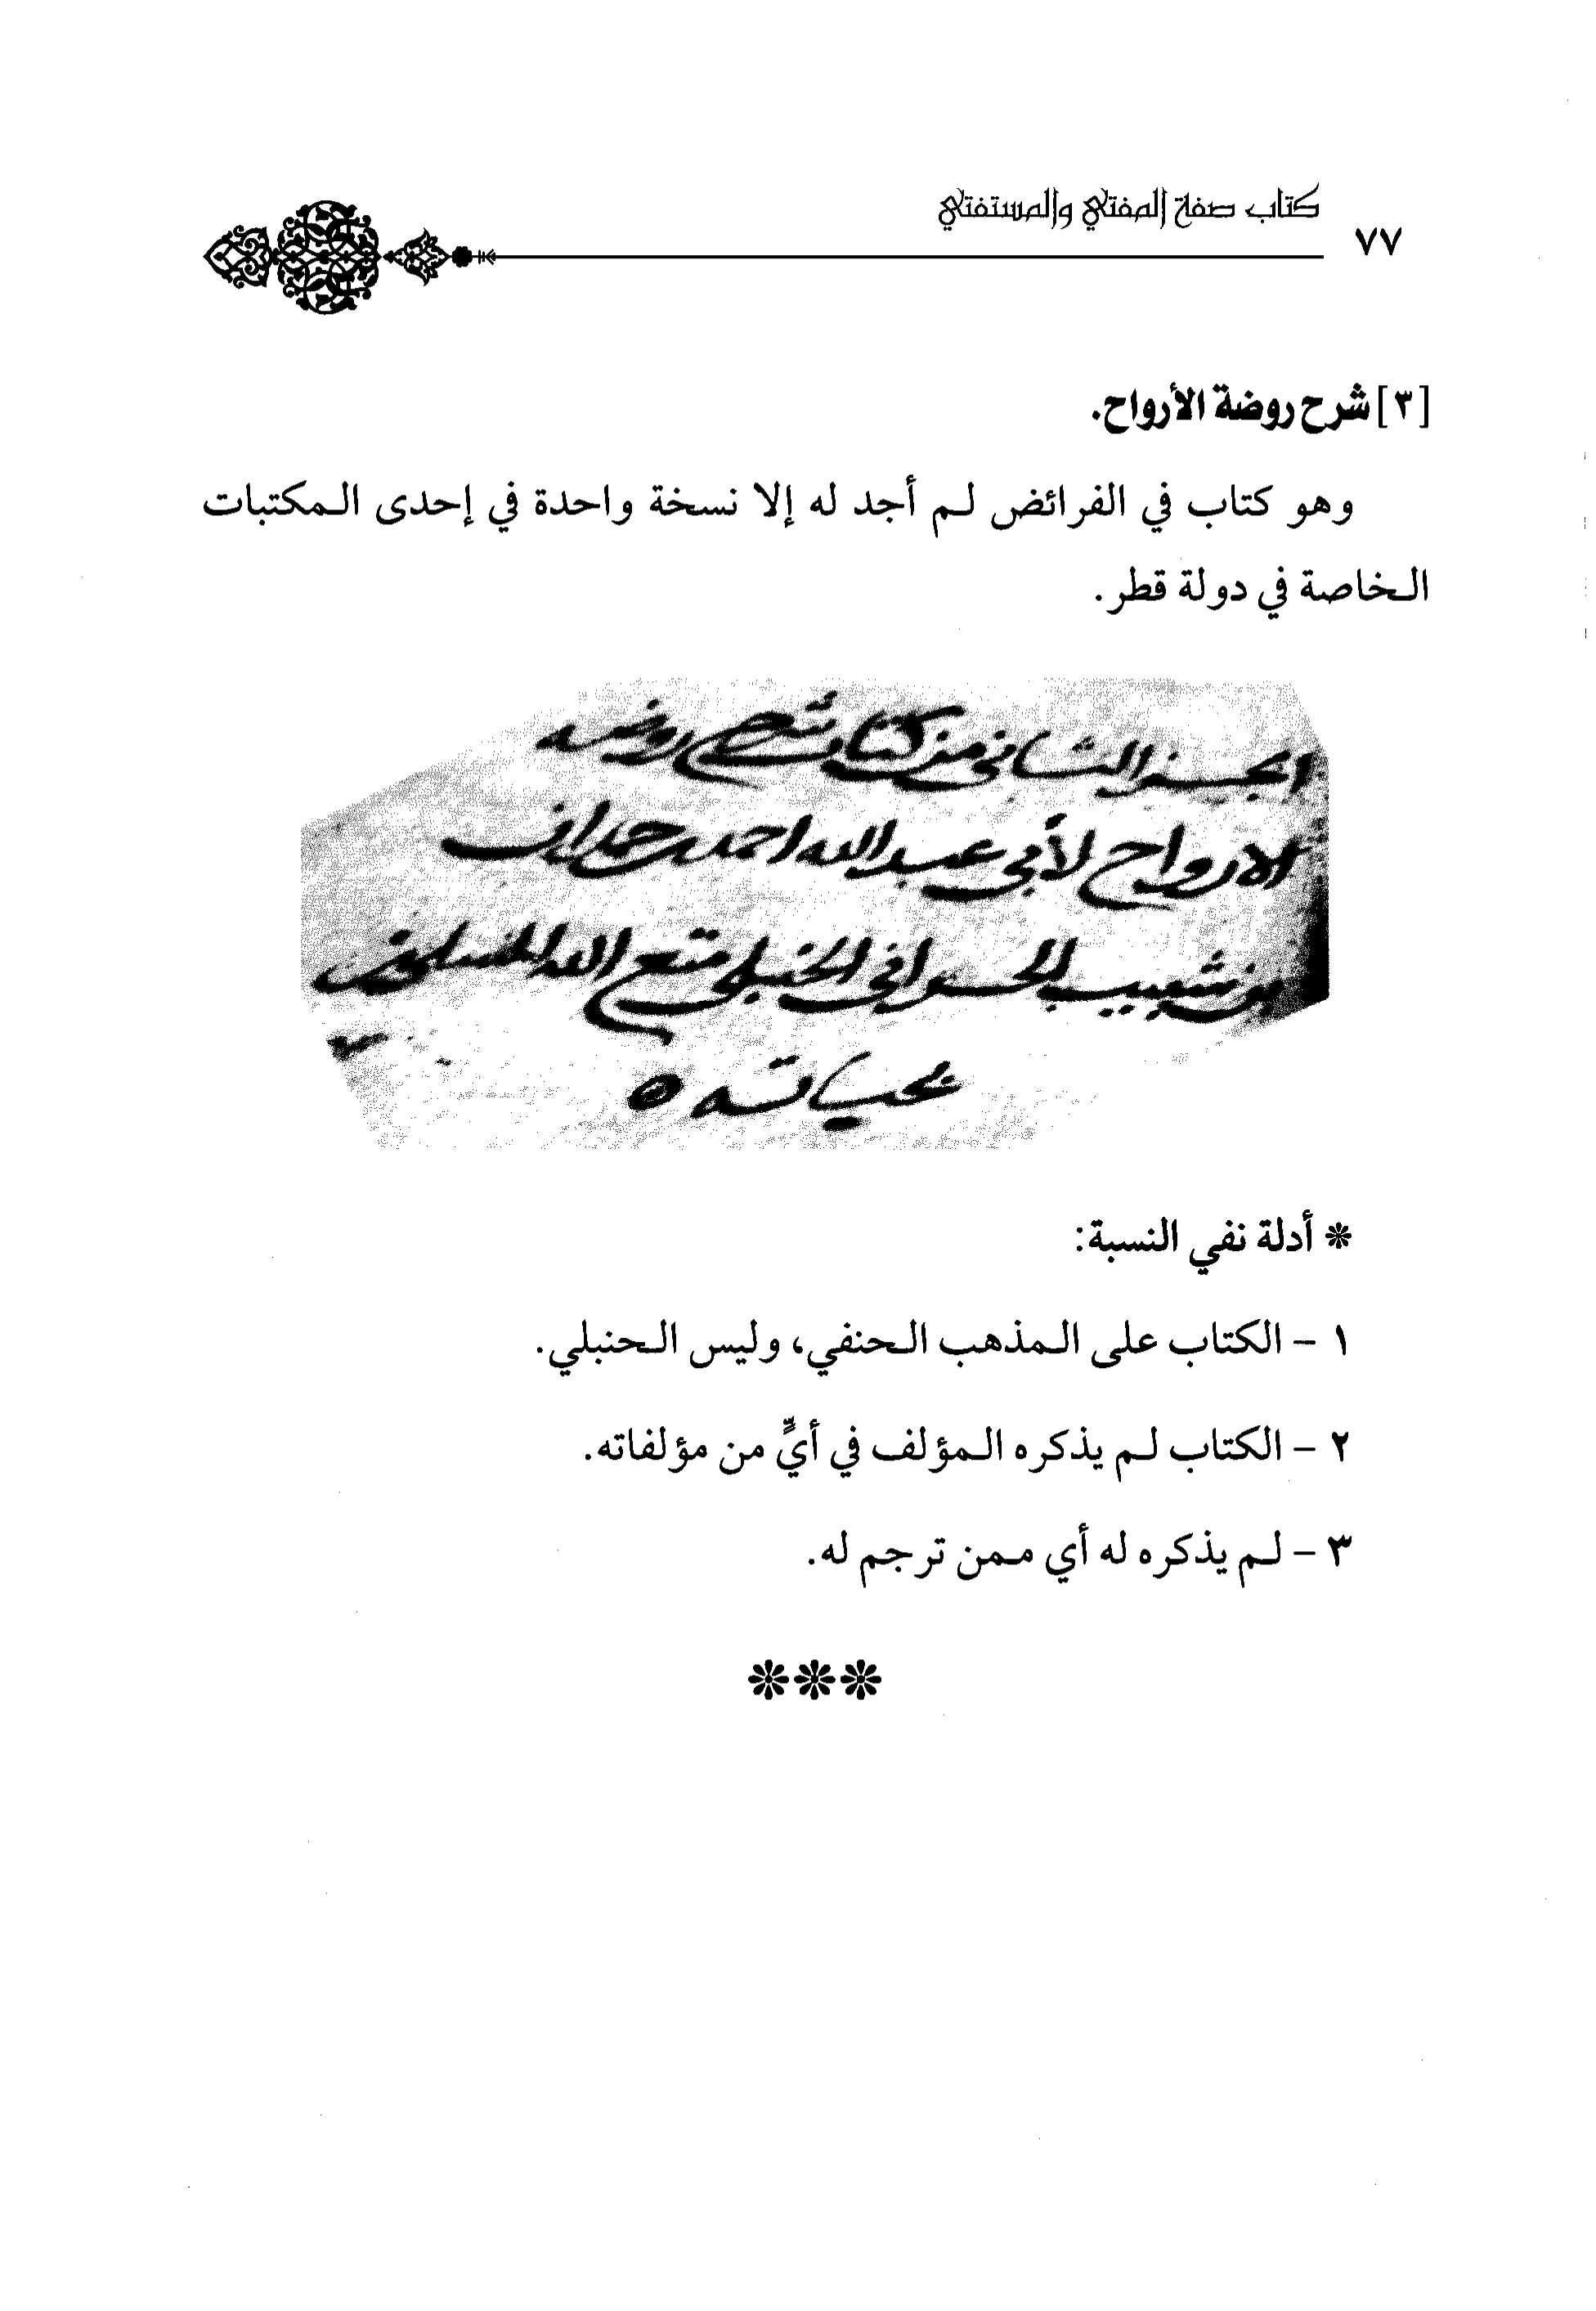 كتاب صفة المفتي والمستفتي
٧٧
[٣] شرح روضة الأرواح.
وهو كتاب في الفرائض لم أجد له إلا نسخة واحدة في إحدى المكتبات
الخاصة في دولة قطر.
الجزء الثاني من كتاب شرح روضه
الارواح لأبي عبد الله احمد بن حمدان
بن شبيب الحراني الحنبلي متع الله المسلمين
بحياته
* أدلة نفي النسبة:
١ - الكتاب على المذهب الحنفي، وليس الحنبلي.
٢ - الكتاب لم يذكره المؤلف في أيٍّ من مؤلفاته.
٣ - لم يذكره له أي ممن ترجم له.
***